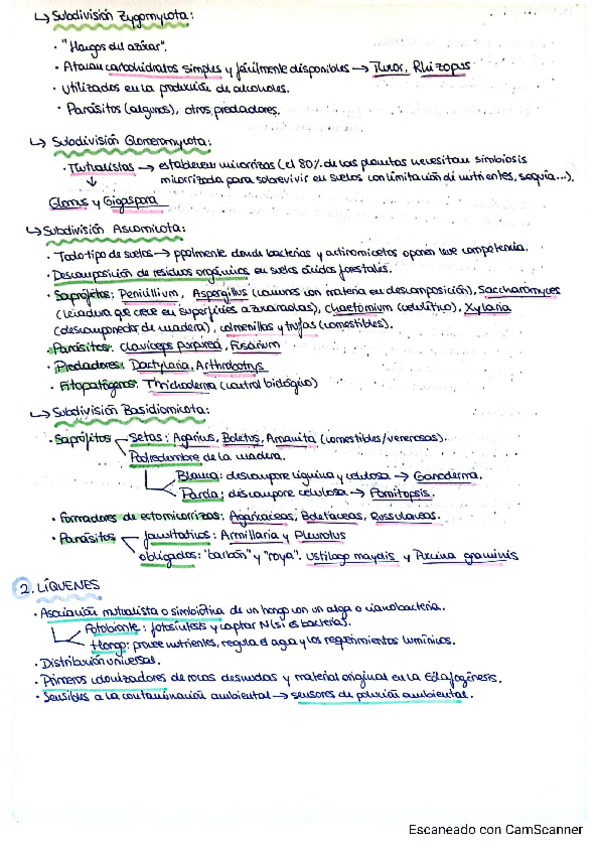 ↳ Subdivisión Zygomycota:
· "Hongos del azúcar".
· Atacan carbohidratos simples y fácilmente disponibles → Mucor, Rhizopus
· Utilizados en la producción de alcoholes.
· Parásitos (algunos), otros predadores.
↳ Subdivisión Glomeromycota:
· Mutualistas → establecen micorrizas (el 80% de las plantas necesitan simbiosis
micorrizada para sobrevivir en suelos con limitación de nutrientes, sequía...).
↓
Glomus y Gigaspora
↳ Subdivisión Ascomicota:
· Todo tipo de suelos → ppalmente donde bacterias y actinomicetos oponen leve competencia.
· Descomposición de residuos orgánicos en suelos ácidos forestales.
· Saprófitos: Penicillium, Aspergillus (comunes con materia en descomposición), Saccharomyces
(levadura que crece en superficies azucaradas), Chaetomium (celulítico), Xylaria
(descomponedor de madera), colmenillas y trufas (comestibles).
· Parásitos: Claviceps purpurea, Fusarium
· Predadores: Dactylaria, Arthrobotrys
· Fitopatógenos: Thrichoderma (control biológico)
↳ Subdivisión Basidiomicota:
· Saprófitos Setas: Agarius, Boletus, Amanita (comestibles/venenosas).
Podredumbre de la madera.
Blanca: descompone lignina y celulosa → Ganoderma.
Parda: descompone celulosa → Fomitopsis.
· Formadores de ectomicorrizas: Agaricaceas, Boletaceas, Russulaceas.
· Parásitos facultativos: Armillaria y Pleurotus
obligados: "carbón" y "roya". Ustilago maydis y Puccinia graminis
2. LÍQUENES
· Asociación mutualista o simbiótica de un hongo con un alga o cianobacteria.
Fotobionte: fotosíntesis y captar N (si es bacteria).
Hongo: provee nutrientes, regula el agua y los requerimientos lumínicos.
· Distribución universal.
· Primeros colonizadores de rocas desnudas y material original en la Edafogénesis.
· Sensibles a la contaminación ambiental → sensores de polución ambiental.
Escaneado con CamScanner